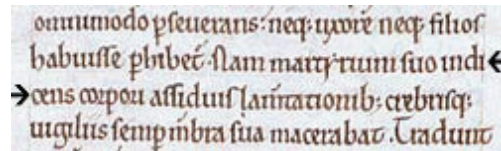 omnimodo ꝑseuerans: neq; uxorē neq; filios
habuisse ꝑhibet̄. Nam martyrium suo indi
cens corpori assiduis crebrisq;
uigiliis semp m̄bra sua macerabat. Tradunt